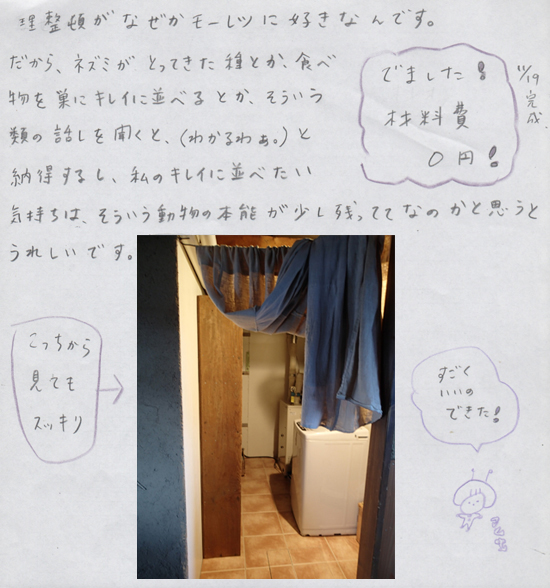 理整頓がなぜかモーレツに好きなんです。
だから、ネズミがとってきた種とか、食べ
物を巣にキレイに並べるとか、そういう
類の話しを聞くと、(わかるわぁ。)と
納得するし、私のキレイに並べたい
気持ちは、そういう動物の本能が少し残っててなのかと思うと
うれしいです。
でました!
材料費
0円!
11/19完成
こっちから
見ても
スッキリ
すごく
いいの
できた!